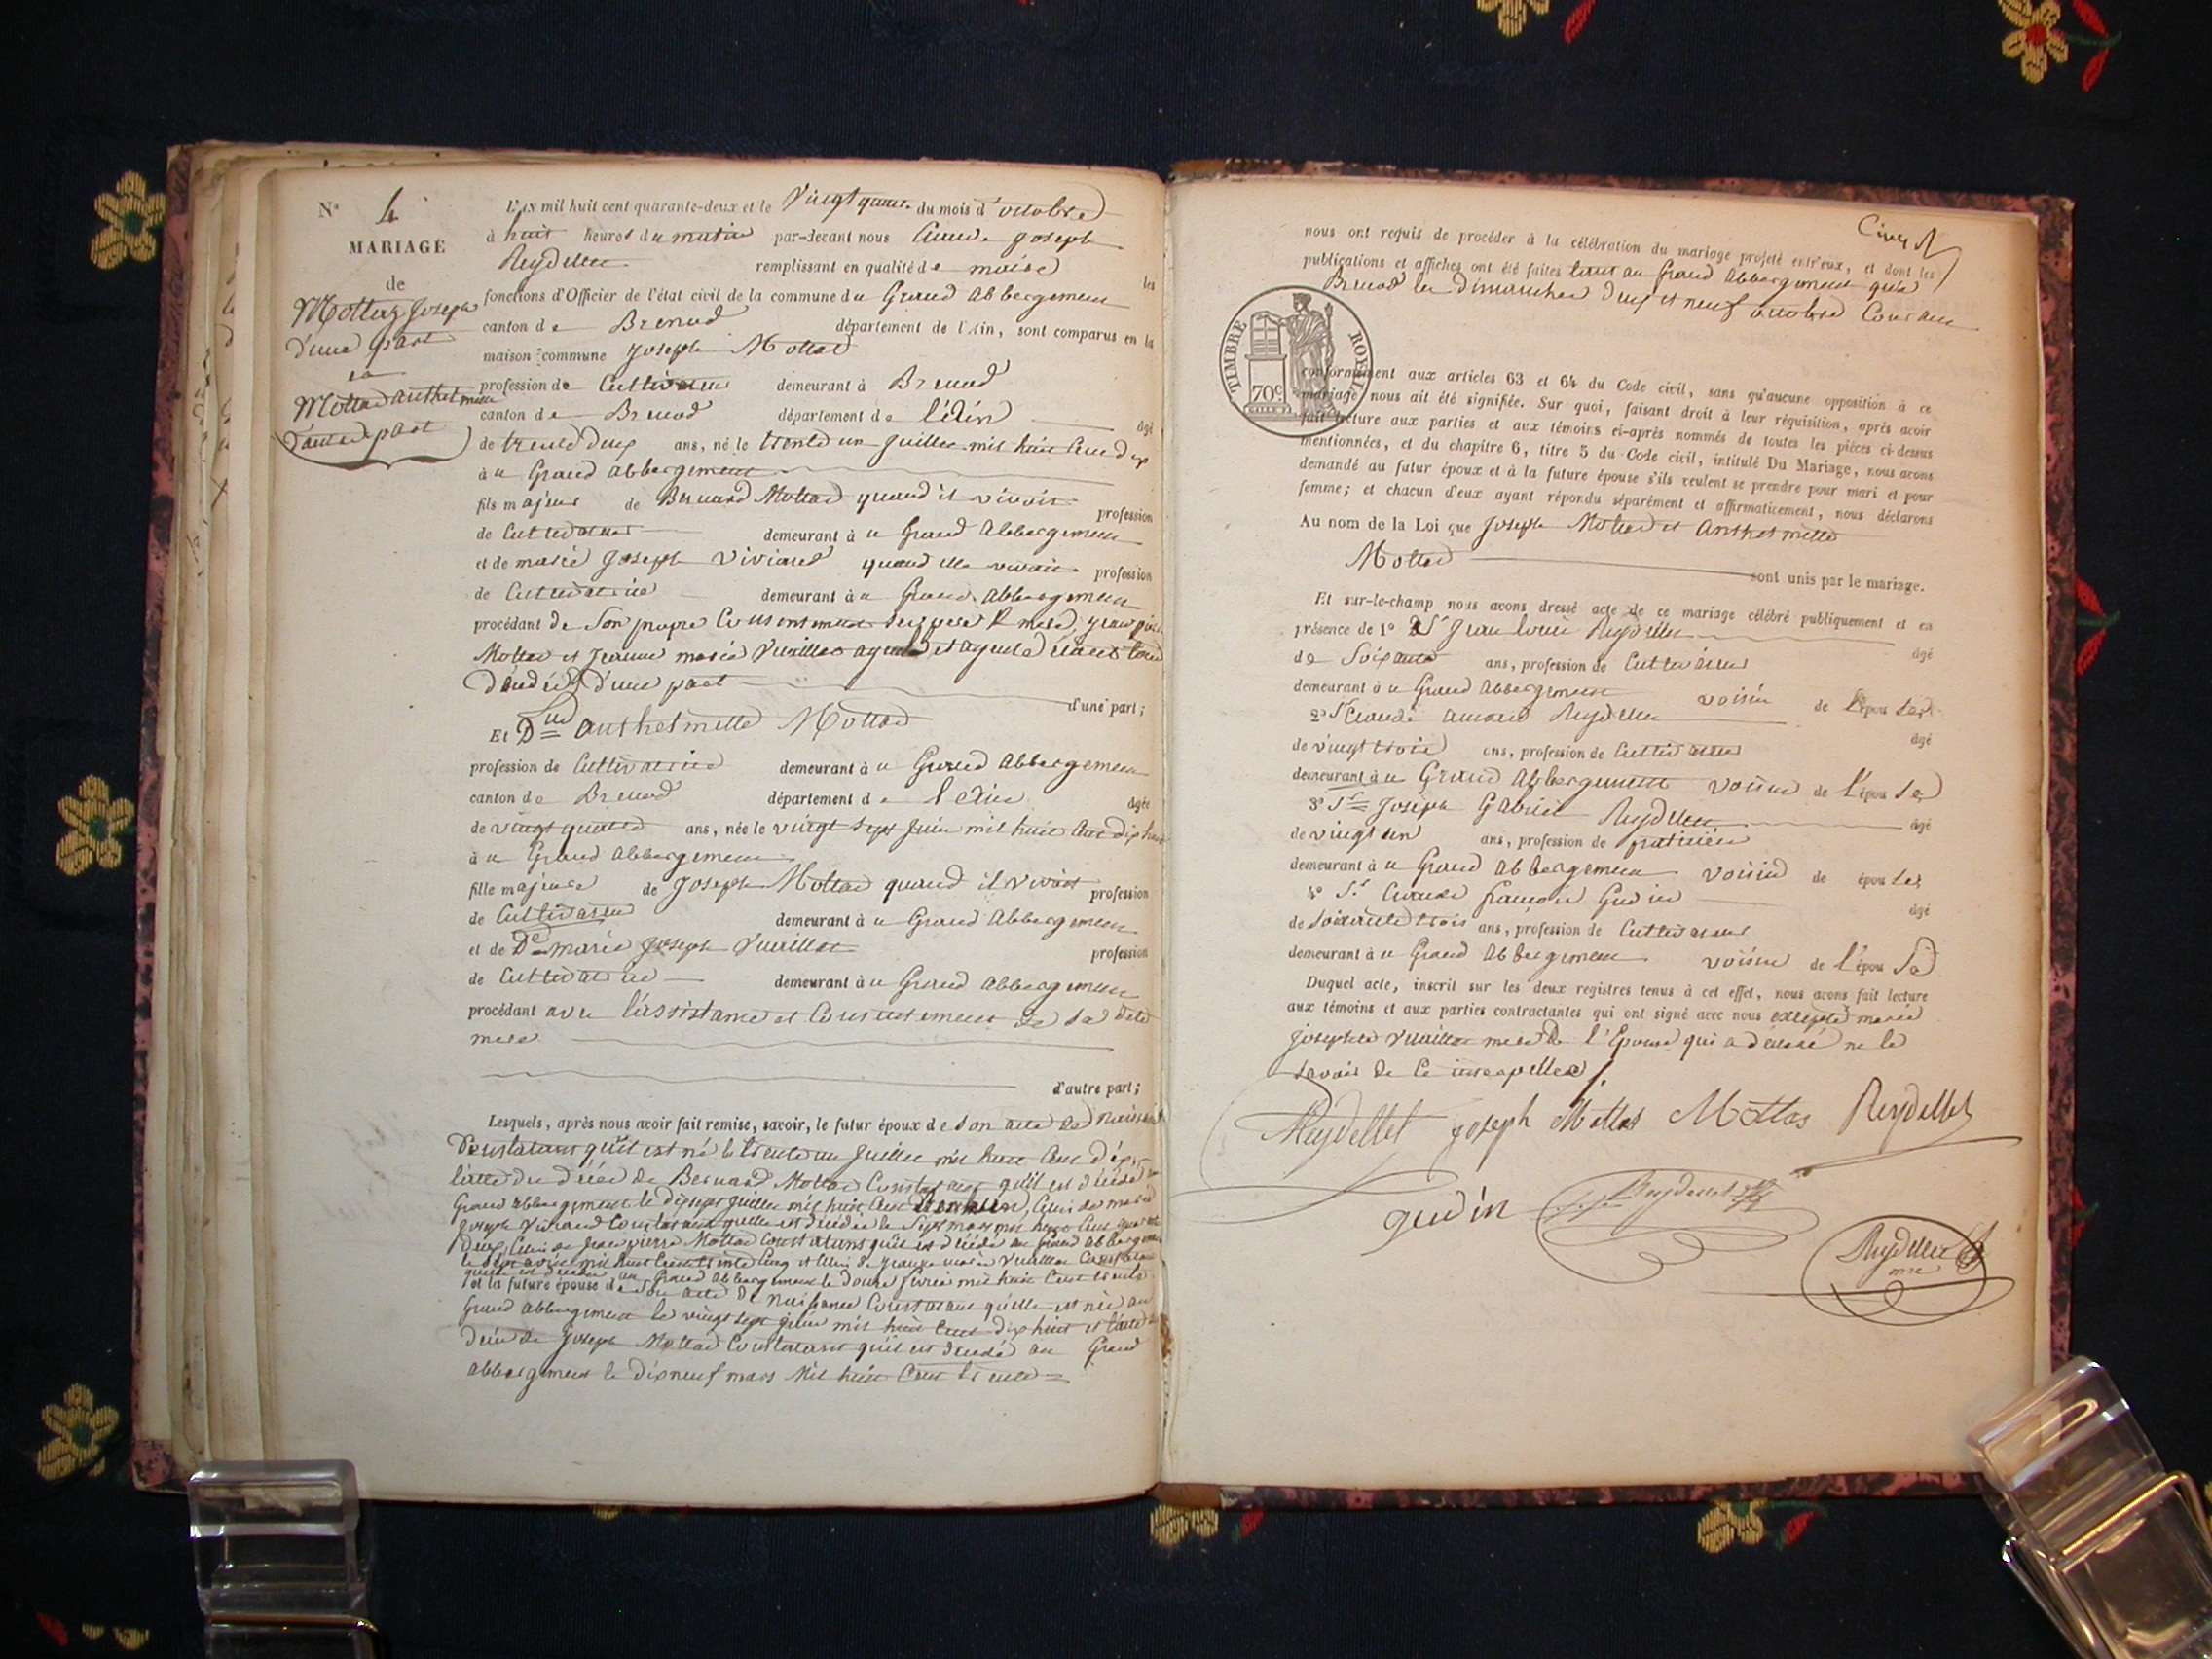 N° 4
MARIAGE
de
Mottaz Joseph
d'une part
et
Mottaz anthelmette
d'autre part
L'AN mil huit cent quarante-deux et le Vingt quatre du mois d'octobre
à huit heures du matin par-devant nous Claude Joseph
Reydellet remplissant en qualité de maire les
fonctions d'Officier de l'état civil de la commune du Grand Abbergement
canton de Brenod département de l'Ain, sont comparus en la
maison commune Joseph Mottaz
profession de Cultivateur demeurant à Brenod
canton de Brenod département de l'Ain âgé
de trente deux ans, né le trente un juillet mil huit Cent dix
au Grand Abbergement
fils majeur de Bernard Mottaz quand il vivoit profession
de Cultivateur demeurant au Grand Abbergement
et de marie Joseph Viviand quand elle vivoit profession
de Cultivatrice demeurant au Grand Abbergement
procédant de Son propre Consentement Ses pere & mere,
Mottaz et Jeanne marie Vuaillat ayeul et ayeule étant tous
décédés d'une part d'une part;
Et Dlle anthelmette Mottaz
profession de Cultivatrice demeurant au Grand Abbergement
canton de Brenod département de l'Ain âgée
de vingt quatre ans, née le vingt sept juin mil huit Cent dix huit
au Grand Abbergement
fille majeure de Joseph Mottaz quand il vivoit profession
de Cultivateur demeurant au Grand Abbergement
et de De marie Joseph Vuaillat profession
de Cultivatrice demeurant au Grand Abbergement
procédant avec l'assistance et Consentement de Sa dite
mere
d'autre part;
Lesquels, après nous avoir fait remise, savoir, le futur époux de Son acte de naissance
Constatant qu'il est né le trente un juillet mil huit Cent dix,
l'acte de décés de Bernard Mottaz Constatant qu'il est décédé au
Grand Abbergement le dix sept juillet mil huit Cent, Celui de marie
Joseph Viviand Constatant quelle est décédée le Sept mars mil huit Cent quarante
deux, Celui de Jean pierre Mottaz Constatant qu'il est décédé au Grand Abbergement
le mil huit Cent trente Cinq et Celui de Jeanne marie Vuaillat Constatant
quelle est décédée au Grand Abbergement le douze fevrier mil huit Cent trente
et la future épouse de Son acte de naissance Constatant quelle est née au
Grand Abbergement le vingt sept juin mil huit Cent dix huit et l'acte de
décés de Joseph Mottaz Constatant qu'il est décédé au Grand
Abbergement le dix neuf mars Mil huit Cent trente
Cinq
nous ont requis de procéder à la célébration du mariage projeté entr'eux, et dont les
publications et affiches ont été faites tant au Grand Abbergement qu'à
Brenod les dimanches deux et neuf octobre Courant
TIMBRE ROYAL
70c
conformément aux articles 63 et 64 du Code civil, sans qu'aucune opposition à ce
mariage nous ait été signifiée. Sur quoi, faisant droit à leur réquisition, après avoir
fait lecture aux parties et aux témoins ci-après nommés de toutes les pièces ci-dessus
mentionnées, et du chapitre 6, titre 5 du Code civil, intitulé Du Mariage, nous avons
demandé au futur époux et à la future épouse s'ils veulent se prendre pour mari et pour
femme; et chacun d'eux ayant répondu séparément et affirmativement, nous déclarons
Au nom de la Loi que Joseph Mottaz et Anthelmette
Mottaz sont unis par le mariage.
Et sur-le-champ nous avons dressé acte de ce mariage célébré publiquement et en
présence de 1° Sr Jean louis Reydellet âgé
de Soixante ans, profession de Cultivateur
demeurant au Grand Abbergement voisin de l'épouse
2° Sr Claude Reydellet âgé
de vingt trois ans, profession de Cultivateur
demeurant au Grand Abbergement voisin de l'épouse
3° Sr Joseph Gabriel Reydellet âgé
de vingt un ans, profession de praticien
demeurant au Grand Abbergement voisin de épouse
4° Sr Claude françois Gudin âgé
de Soixante trois ans, profession de Cultivateur
demeurant au Grand Abbergement voisin de l'épouse
Duquel acte, inscrit sur les deux registres tenus à cet effet, nous avons fait lecture
aux témoins et aux parties contractantes qui ont signé avec nous excepté marie
Josephe Vuaillat mere de l'Epouse qui a déclaré ne le
savoir de Ce interpellée
Reydellet joseph Mottas Mottas Reydellet
gudin Reydellet
Reydellet
mre